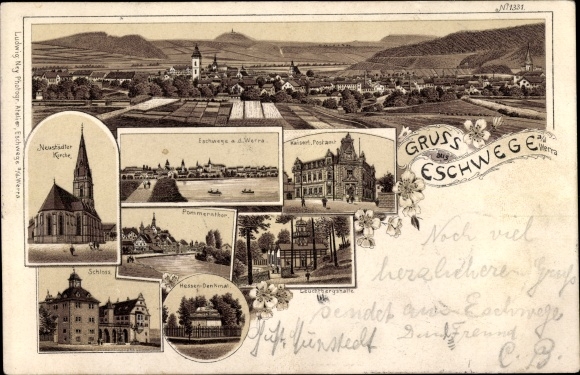 Nº 1331.
Ludwig Ney Photogr. Atelier, Eschwege a/d Werra.
GRUSS
aus
ESCHWEGE
a/d
Werra
Neustädter
Kirche.
Eschwege a. d. Werra.
Kaiserl. Postamt
Pommernthor.
Leuchtbergshalle.
Schloss.
Hessen-Denkmal.
Noch viel
herzlichere Gruß
sendet aus Eschwege
Dein Freund
C. B.